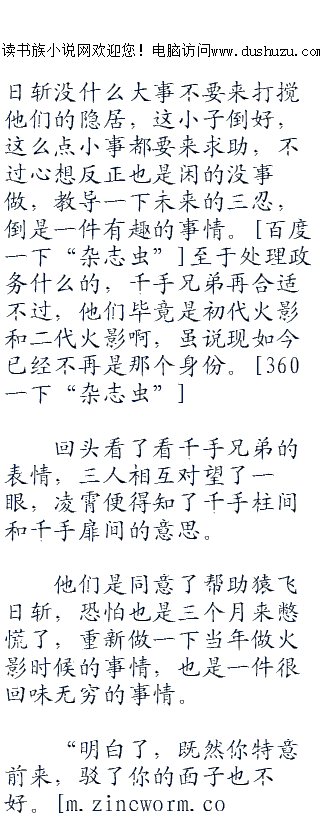 读书族小说网欢迎您！电脑访问www.dushuzu.com
日斩没什么大事不要来打搅
他们的隐居，这小子倒好，
这么点小事都要来求助，不
过心想反正也是闲的没事
做，教导一下未来的三忍，
倒是一件有趣的事情。[百度
一下“杂志虫”]至于处理政
务什么的，千手兄弟再合适
不过，他们毕竟是初代火影
和二代火影啊，虽说现如今
已经不再是那个身份。[360
一下“杂志虫”]
回头看了看千手兄弟的
表情，三人相互对望了一
眼，凌霄便得知了千手柱间
和千手扉间的意思。
他们是同意了帮助猿飞
日斩，恐怕也是三个月来憋
慌了，重新做一下当年做火
影时候的事情，也是一件很
回味无穷的事情。
“明白了，既然你特意
前来，驳了你的面子也不
好。[m.zincworm.co